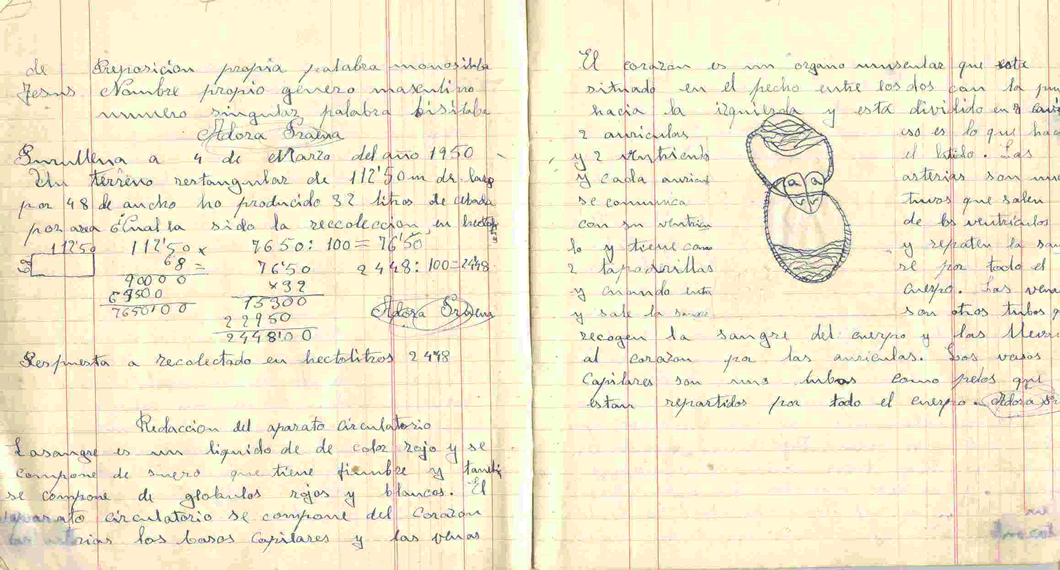 de Preposicion propia palabra monosilaba
Jesus Nombre propio género masculino
numero singular palabra bisilaba
Adora Sraena
Purullena a 4 de Marzo del año 1950
Un terreno restangular de 112'50 m de largo
por 48 de ancho ho producido 32 litros de cebada
por area ¿Cual a sido la reccoleccion en hectol
112'50
68
112'50 x
68 =
90000
67500
7650'00
7650 : 100 = 76'50
76'50
x 32
15300
22950
2448'00
2448 : 100 = 24'48
Adora Sraena
Respuesta a recolectado en hectolitros 24'48
Redaccion del aparato circulatorio
La sangre es un liquido de de color rojo y se
compone de suero que tiene fiumbre y tambi
se compone de globulos rojos y blancos. El
aparato circulatorio se compone del Corazon
las arterias los basos Capilares y las venas
El corazon es un organo muscular que esta
situado en el pecho entre los dos con la pun
hacia la izquierda y está dividido en 4 cavi
2 auriculas
y 2 ventriculo
y cada auricul
se comunica
con su ventricu
lo y tiene como
2 tapaderillas
y cuando entra
y sale la sangre
eso es lo que hace
el latido. Las
arterias son unos
tuvos que salen
de los ventriculos
y repaten la san
se por todo el
cuerpo. Las vena
son otros tubos q
recogen la sangre del cuerpo y las llevan
al corazon por las auriculas. Los vasos
Capilares son unos tubos como pelos que
estan repartidos por todo el cuerpo. Adora Sr